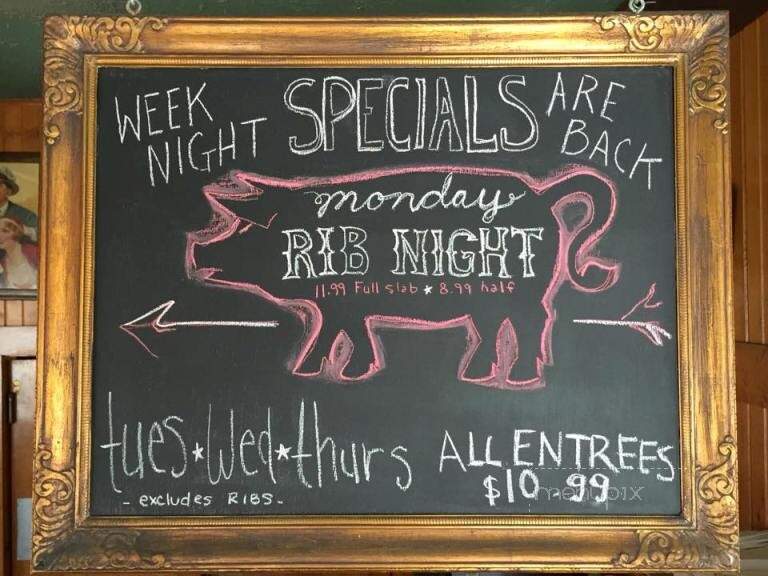 WEEK NIGHT SPECIALS ARE BACK
monday
RIB NIGHT
11.99 Full slab ★ 8.99 half
tues★Wed★thurs
- excludes RIBS -
ALL ENTREES
$10.99
menupix